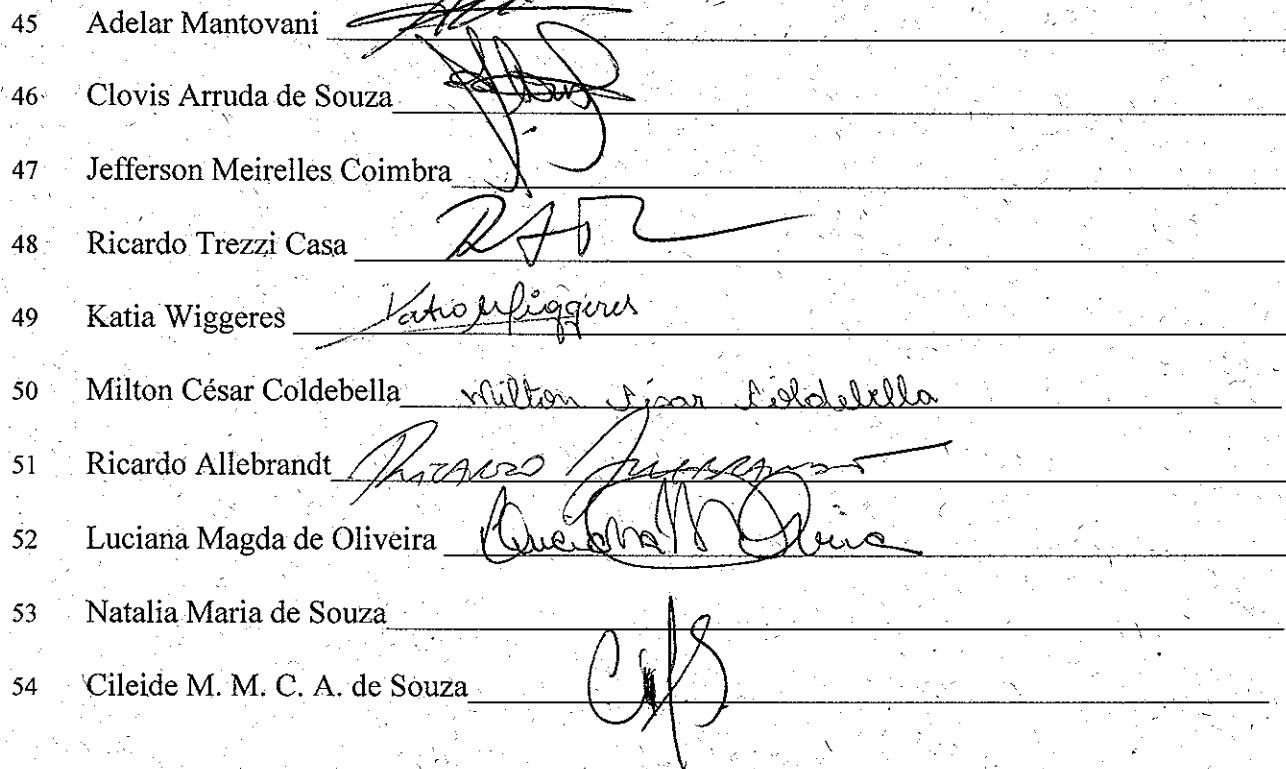 45 Adelar Mantovani
46 Clovis Arruda de Souza
47 Jefferson Meirelles Coimbra
48 Ricardo Trezzi Casa
49 Katia Wiggeres Katia Wiggeres
50 Milton César Coldebella Milton César Coldebella
51 Ricardo Allebrandt Ricardo Allebrandt
52 Luciana Magda de Oliveira Luciana M Oliveira
53 Natalia Maria de Souza
54 Cileide M. M. C. A. de Souza